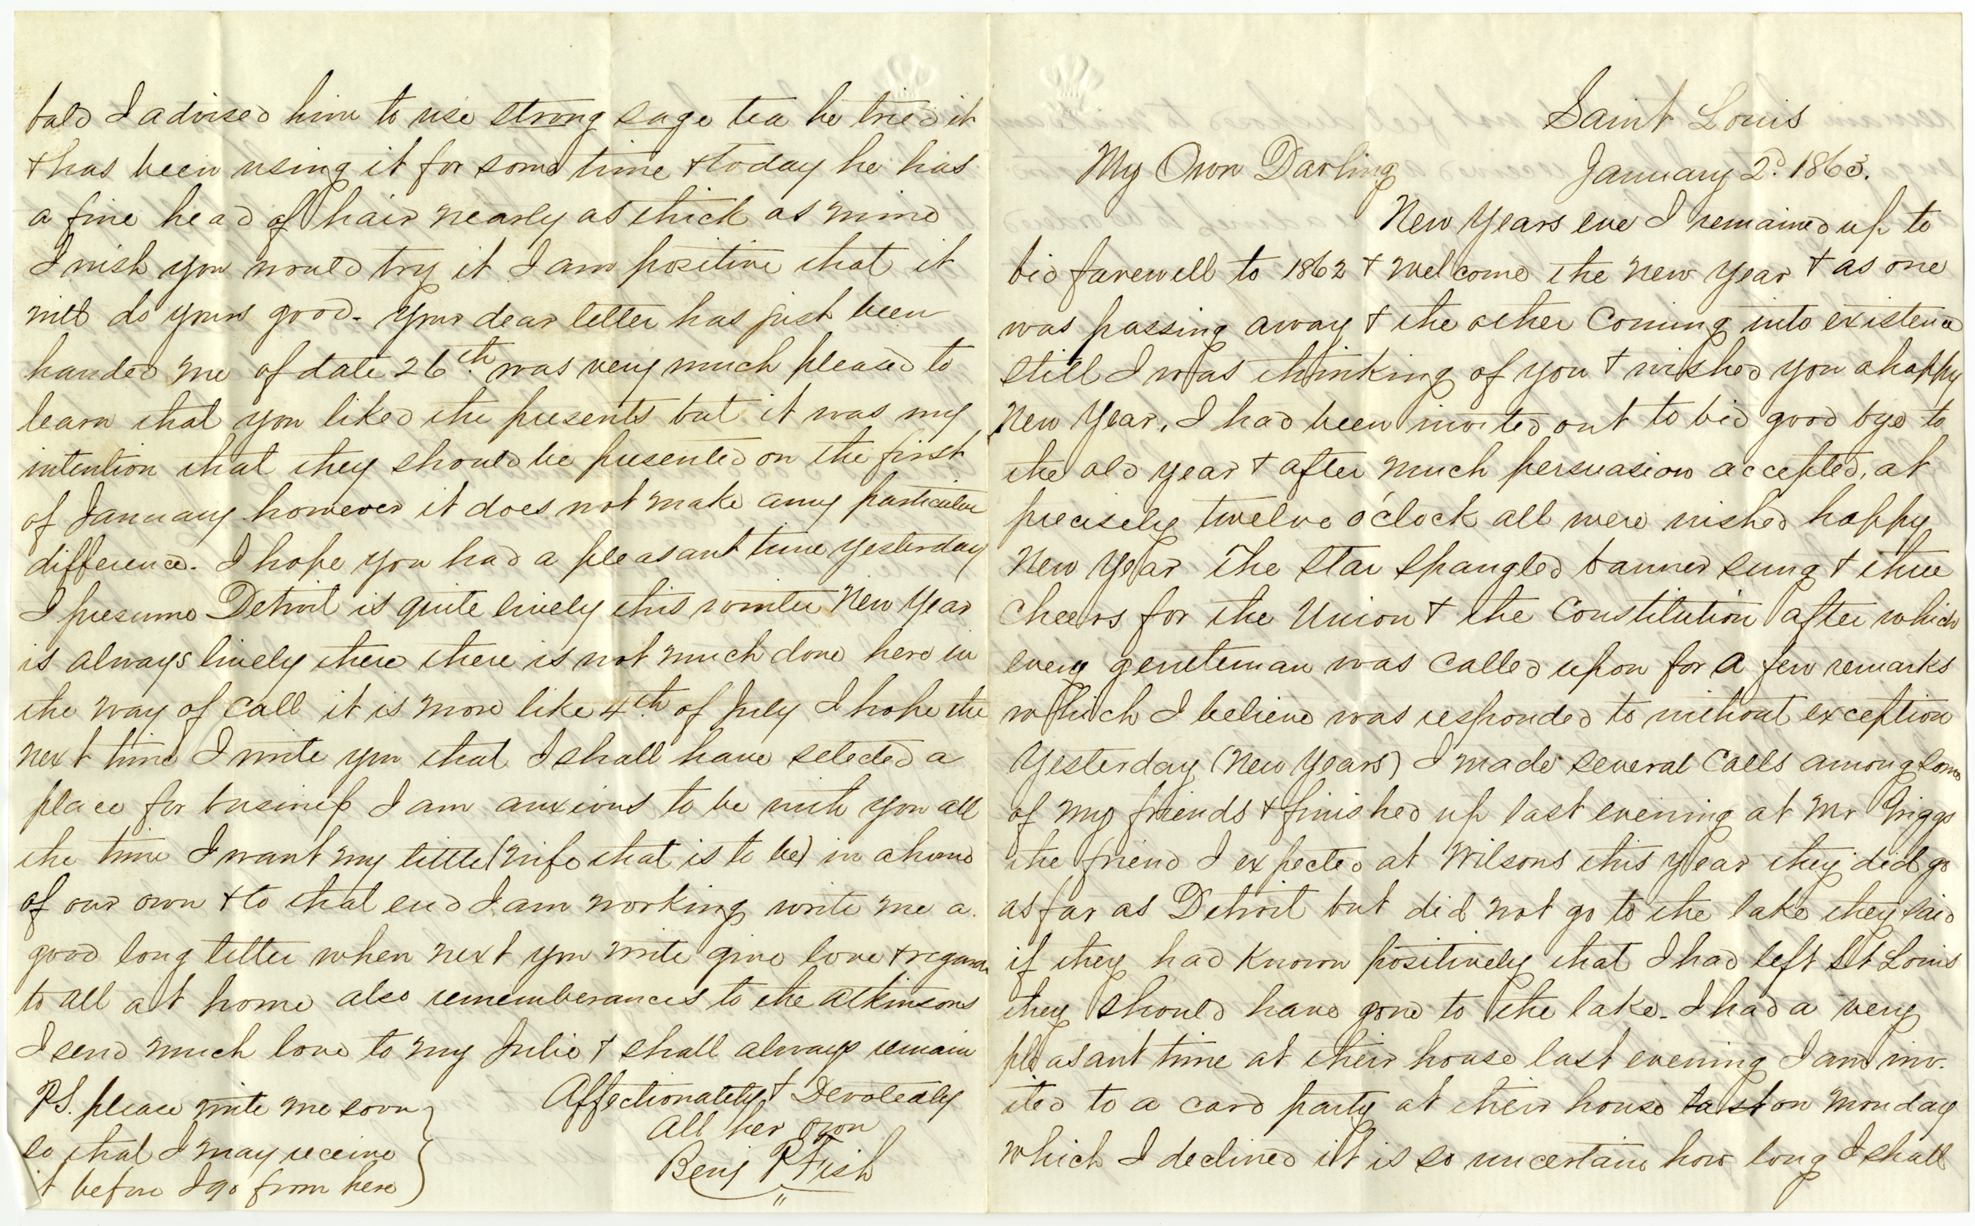 bald I advised him to use strong sage tea he tried it
& has been using it for some time & today he has
a fine head of hair nearly as thick as mine
I wish you would try it I am positive that it
will do yours good. Your dear letter has just been
handed me of date 26th was very much pleased to
learn that you liked the presents but it was my
intention that they should be presented on the first
of January however it does not make any particular
difference. I hope you had a pleasant time yesterday
I presume Detroit is quite lively this winter New Year
is always lively there there is not much done here in
the way of call it is more like 4th of July I hope the
next time I write you that I shall have selected a
place for business I am anxious to be with you all
the time I want my little (wife that is to be) in a home
of our own & to that end I am working write me a
good long letter when next you write give love & regards
to all at home also rememberances to the Atkinsons
I send much love to my Julie & shall always remain
Affectionately & Devotedly
All her own
Benj P Fish
P.S. please write me soon
so that I may receive
it before I go from here
Saint Louis
My Own Darling January 2d. 1863.
New Years eve I remained up to
bid farewell to 1862 & welcome the new year & as one
was passing away & the other coming into existence
still I was thinking of you & wished you a happy
New Year. I had been invited out to bid good bye to
the old year & after much persuasion accepted, at
precisely twelve o'clock all were wished happy
New Year The Star Spangled banner sung & three
cheers for the Union & the Constitution after which
every gentleman was called upon for a few remarks
which I believe was responded to without exception
Yesterday (New Years) I made several calls among some
of my friends & finished up last evening at Mr Griggs
the friend I expected at Wilsons this year they did go
as far as Detroit but did not go to the lake they said
if they had known positively that I had left St Louis
they should have gone to the lake. I had a very
pleasant time at their house last evening I am inv-
ited to a card party at their house last on Monday
which I declined it is so uncertain how long I shall